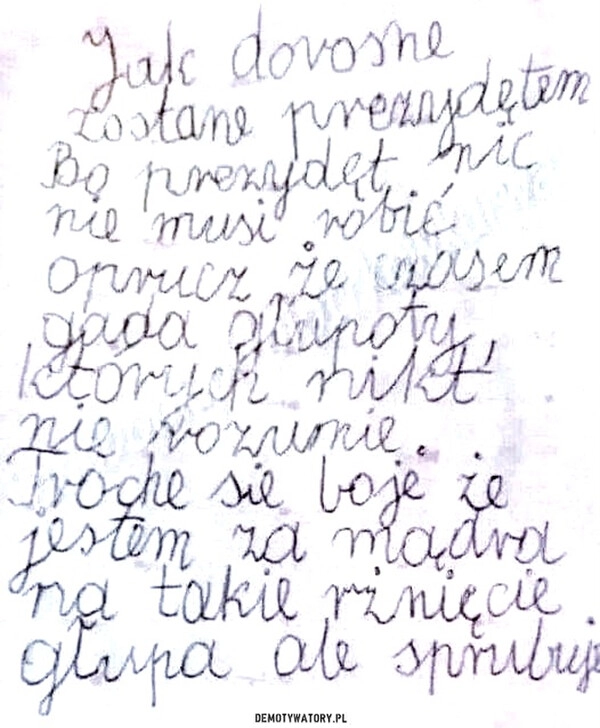 Jak dorosne
zostane prezydętem
Bo prezydęt nic
nie musi robić
oprucz że czasem
gada głupoty
których nikt
nie rozumie.
Troche sie boje że
jestem za mądra
na takie rżnięcie
głupa ale sprubuje
DEMOTYWATORY.PL